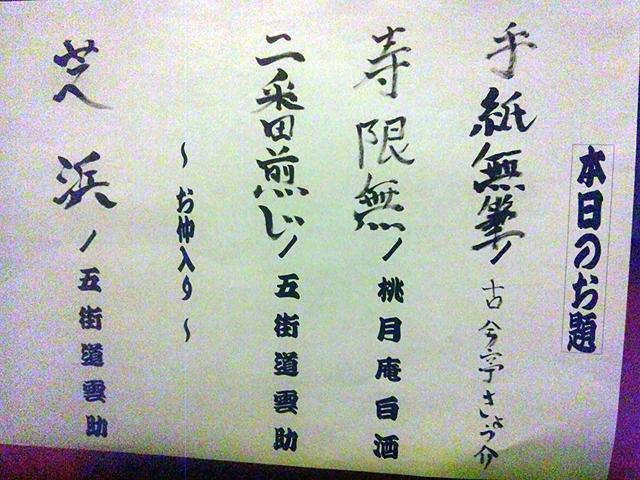 本日のお題
手紙無筆/古今亭きょう介
寿限無/桃月庵白酒
二番煎じ/五街道雲助
~お仲入り~
芝浜/五街道雲助